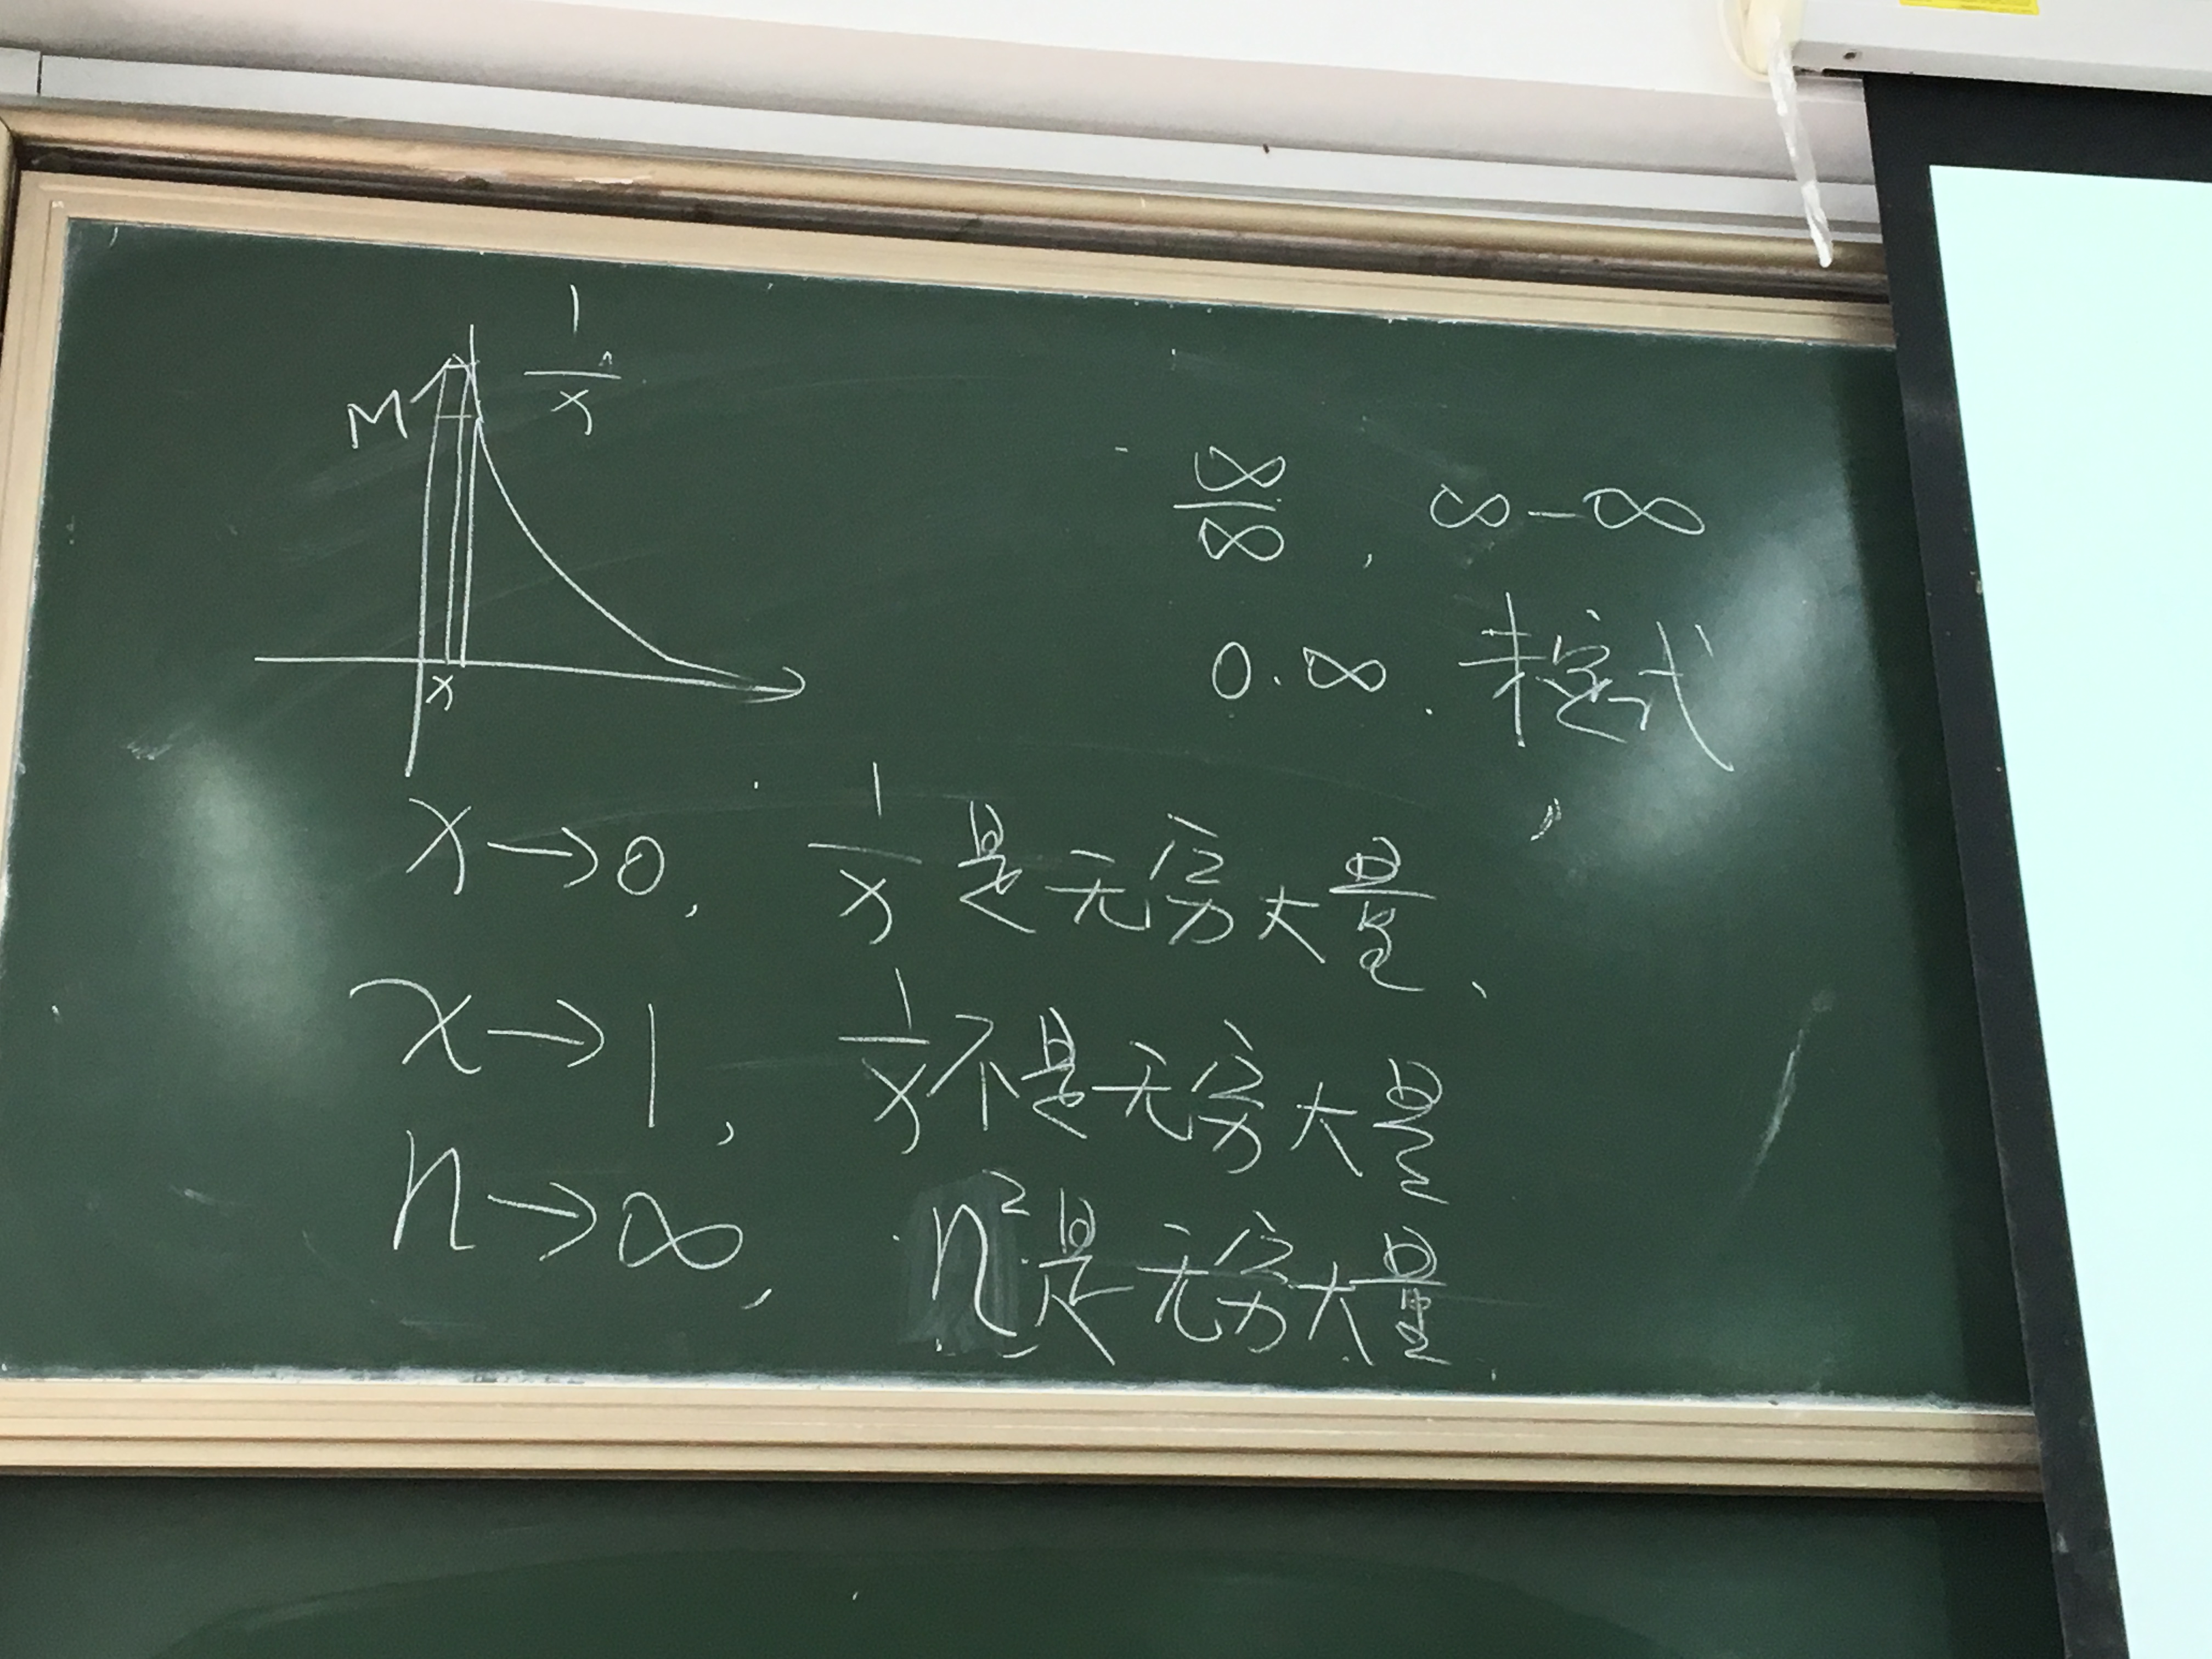 1/x
M
x
∞/∞, ∞-∞
0·∞. 未定式
x→0, 1/x 是无穷大量、
x→1, 1/x 不是无穷大量
n→∞, n² 是无穷大量.